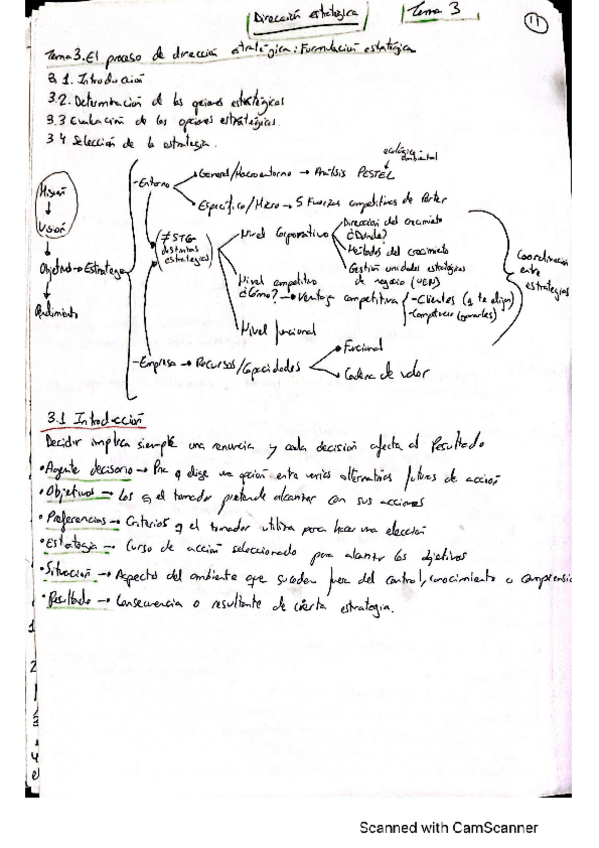 Dirección estratégica
Tema 3
11
Tema 3. El proceso de dirección estratégica: Formulación estratégica
3.1. Introducción
3.2. Determinación de las opciones estratégicas
3.3 Evaluación de las opciones estratégicas.
3.4 Selección de la estrategia.
ecológico
ambiental
Misión
Visión
Objetivos → Estrategia
Rendimiento
-Entorno
General/Macroentorno → Análisis PESTEL
Específico/Micro → 5 Fuerzas competitivas de Porter
(≠ STG
distintas
estrategias)
Nivel Corporativo
Dirección del crecimiento
¿Dónde?
Métodos del crecimiento
Gestión unidades estratégicas
de negocio (UEN)
Nivel competitivo
¿Cómo? → Ventaja competitiva
-Clientes (q te elijan)
-Competencia (ganarles)
Nivel funcional
Coordinación
entre
estrategias
-Empresa → Recursos/Capacidades
Funcional
Cadena de valor
3.1 Introducción
Decidir implica siempre una renuncia y cada decisión afecta al Resultado
• Agente decisorio → q elige una opción entre varias alternativas futuras de acción
• Objetivos → Los q el tomador pretende alcanzar con sus acciones
• Preferencias → Criterios q el tomador utiliza para hacer una elección
• Estrategia → Curso de acción seleccionado para alcanzar los objetivos
• Situación → Aspectos del ambiente que suceden fuera del control, conocimiento o comprensió
• Resultado → Consecuencia o resultante de cierta estrategia.
1
2
3
4
Scanned with CamScanner